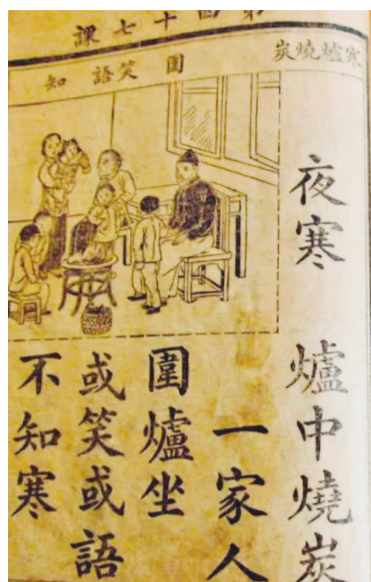 第四十七課
寒爐燒炭 圍 笑語 知
夜寒 爐中燒炭
一家人
圍爐坐
或笑或語
不知寒